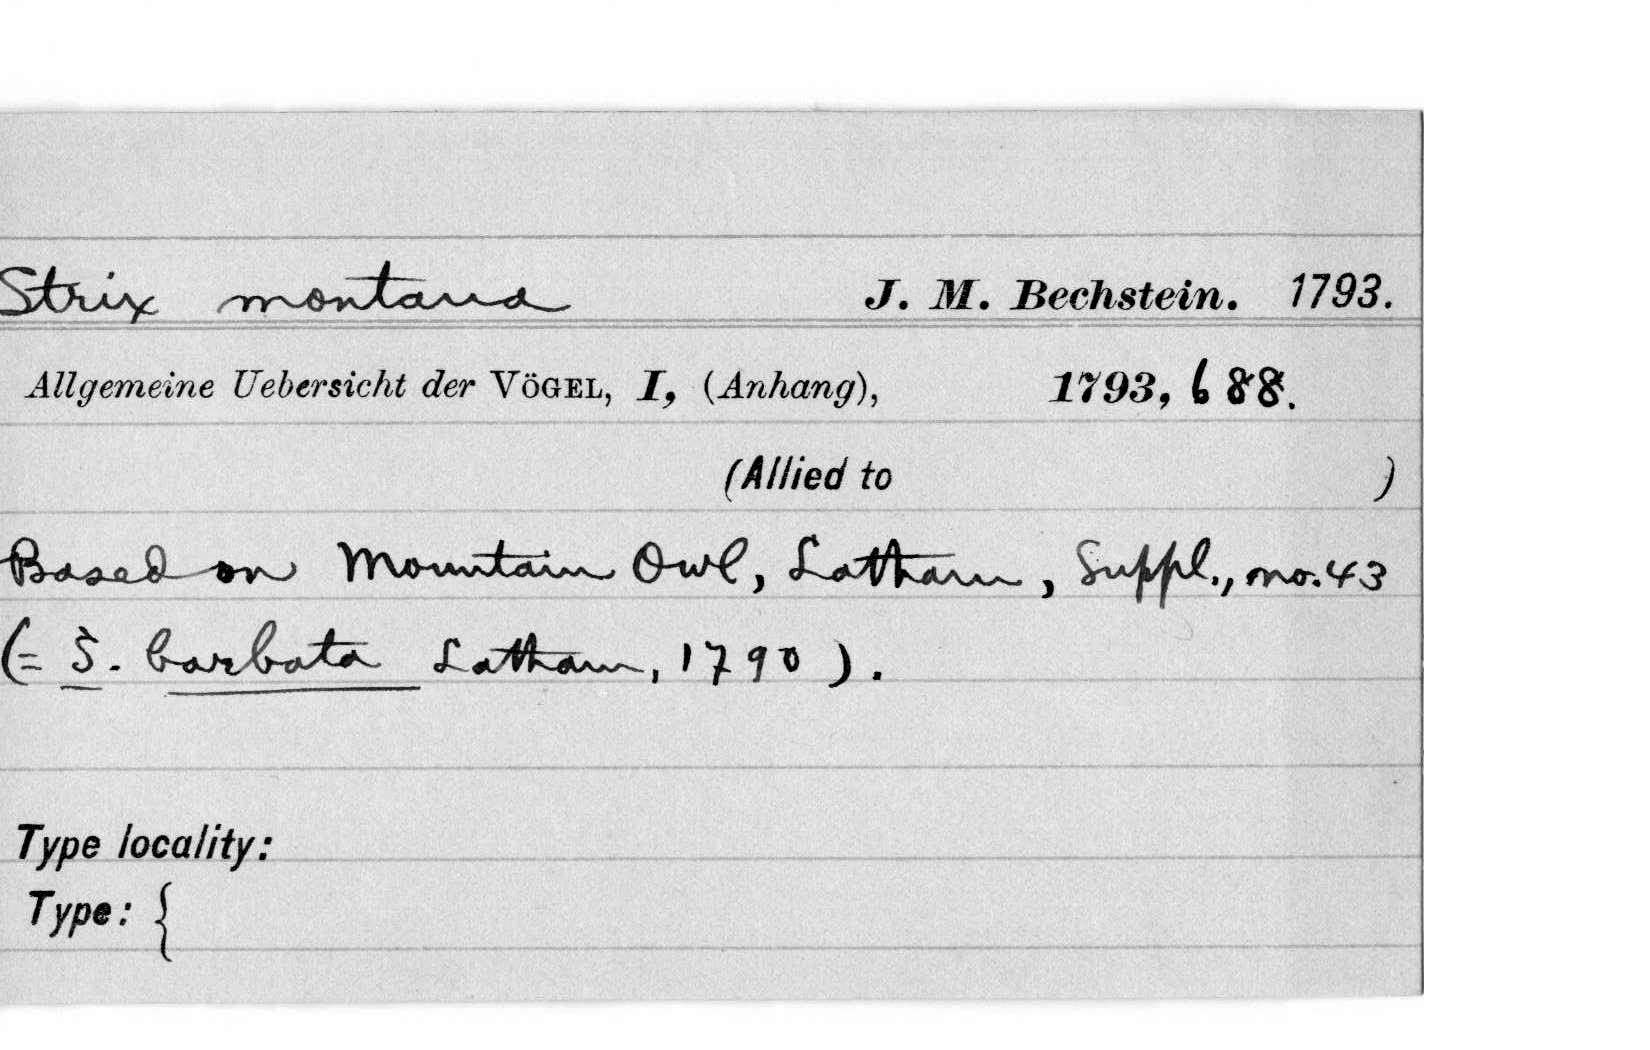 Strix montana J. M. Bechstein. 1793.
Allgemeine Uebersicht der VÖGEL, I, (Anhang), 1793, 688.
(Allied to )
Based on Mountain Owl, Latham, Suppl., no. 43
(= S. barbata Latham, 1790).
Type locality:
Type: {